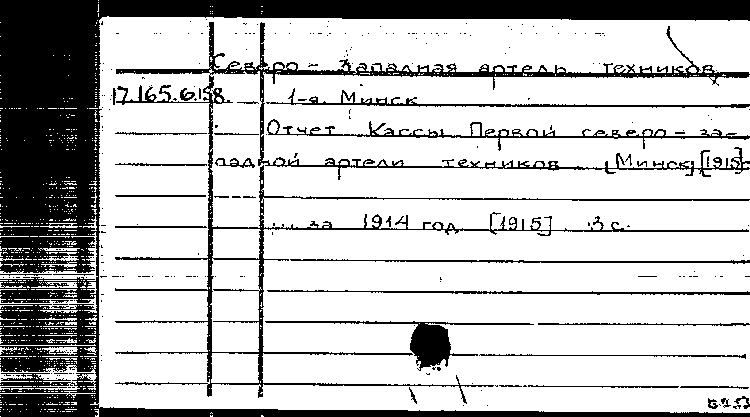 Северо-Западная артель техников,
17.165.6.158. 1-я. Минск
Отчет Кассы Первой северо-за-
падной артели техников [Минск] [1915]
... за 1914 год [1915] 3 с.